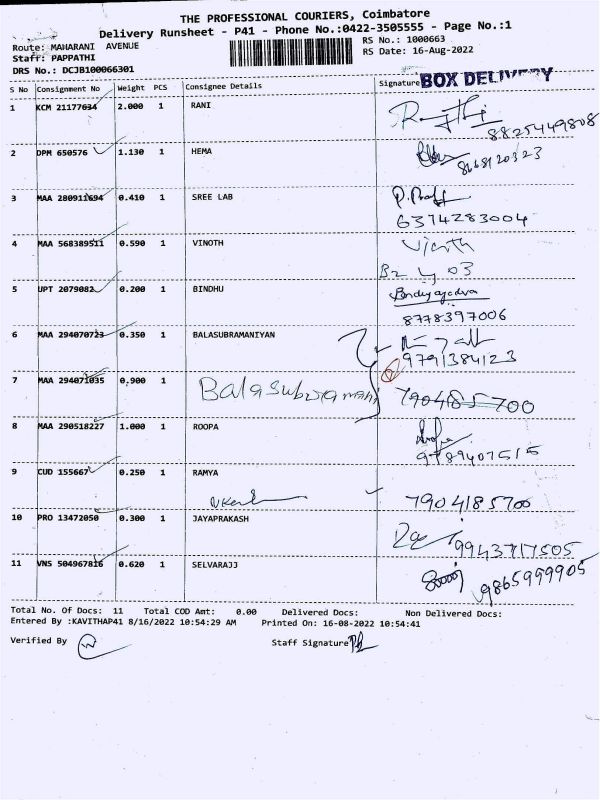 THE PROFESSIONAL COURIERS, Coimbatore
Delivery Runsheet - P41 - Phone No.:0422-3505555 - Page No.:1
Route: MAHARANI AVENUE
RS No.: 1000663
Staff: PAPPATHI
RS Date: 16-Aug-2022
DRS No.: DCJB100066301
S No Consignment No Weight PCS Consignee Details Signature BOX DELIVERY
1 KCM 21177634 2.000 1 RANI
8825449808
2 DPM 650576 1.130 1 HEMA
8668120323
3 MAA 280911694 0.410 1 SREE LAB
6374283004
4 MAA 568389511 0.590 1 VINOTH
Vinoth
5 UPT 2079082 0.200 1 BINDHU
8778397006
6 MAA 294070723 0.350 1 BALASUBRAMANIYAN
9791384123
7 MAA 294071035 0.900 1 Balasubramani 7904185700
8 MAA 290518227 1.000 1 ROOPA
9789407515
9 CUD 155667 0.250 1 RAMYA
7904185700
10 PRO 13472050 0.300 1 JAYAPRAKASH
9943717505
11 VNS 504967816 0.620 1 SELVARAJJ
9865999905
Total No. Of Docs: 11 Total COD Amt: 0.00 Delivered Docs: Non Delivered Docs:
Entered By :KAVITHAP41 8/16/2022 10:54:29 AM Printed On: 16-08-2022 10:54:41
Verified By Staff Signature